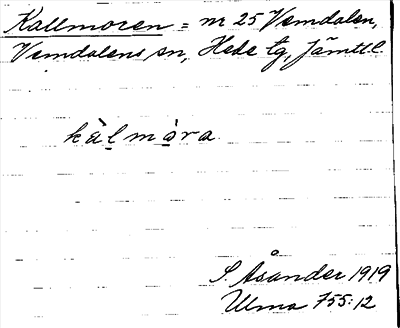 Kallmoren = nr 25 Vemdalen,
Vemdalens sn, Hede tg, Jämtl l.
kàl̲mòra.
S. Åsander 1919
Ulma 755:12